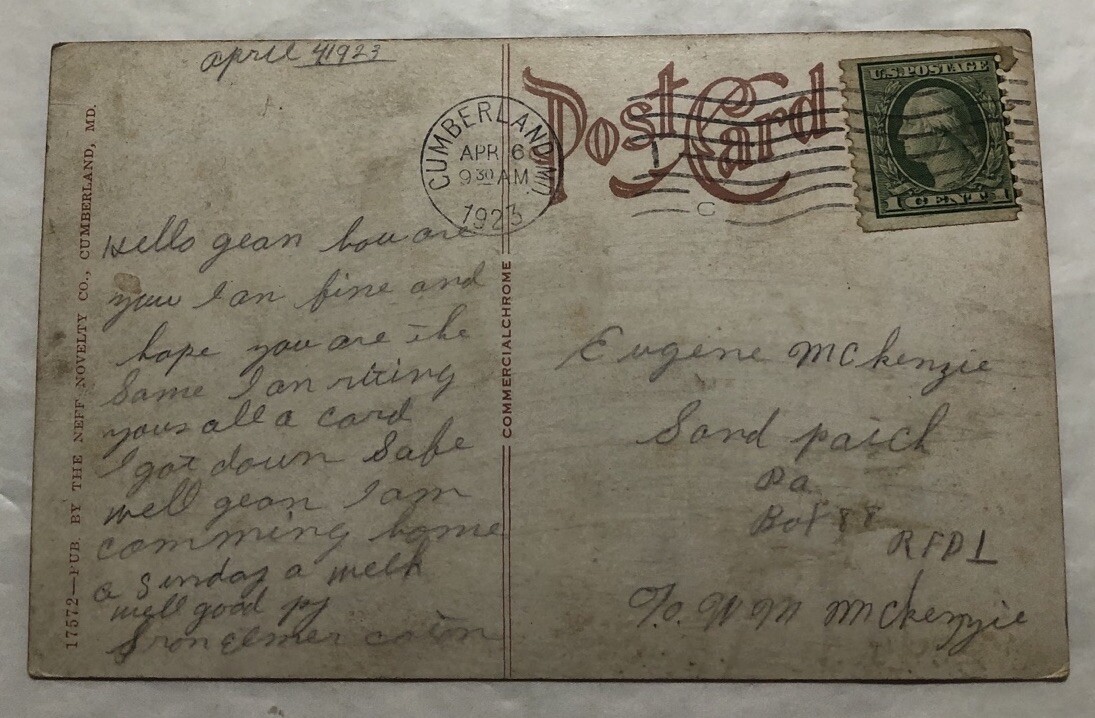 april 4 1923
Hello gean hou are
you I an fine and
hope you are the
Same I an riting
yous all a card
I got down Safe
well gean I am
comming home
a Sunday a welk
well good py
from elmer
17572—PUB. BY THE NEFF NOVELTY CO., CUMBERLAND, MD.
COMMERCIALCHROME
Post Card
CUMBERLAND, MD.
APR 6
9 30 AM
1923
U.S. POSTAGE
1 CENT 1
Eugene McKenzie
Sand patch
Pa
Box 88
RFD 1
C/o Wm McKenzie